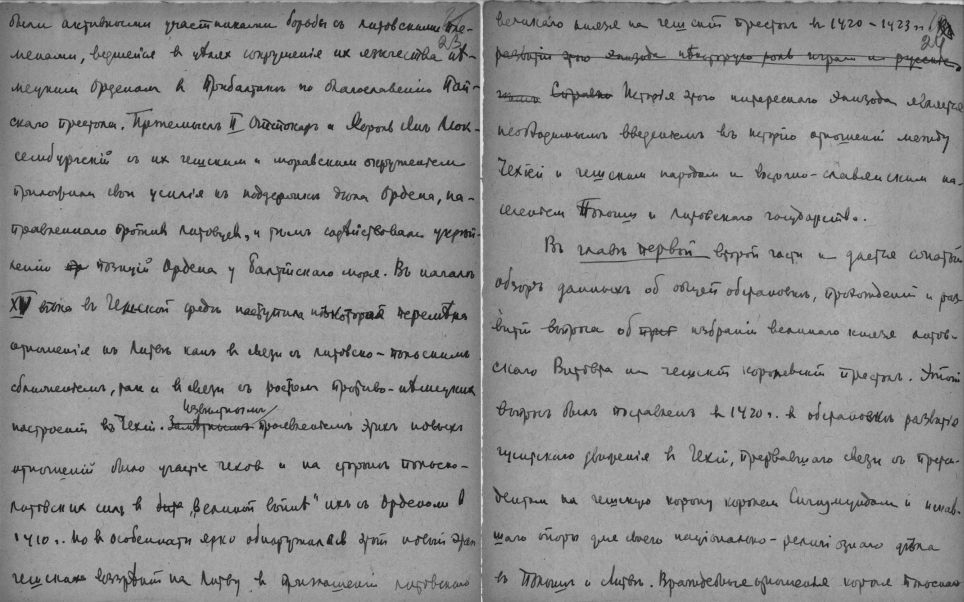 были активными участниками борьбы съ литовскими пле-
23
менами, ведшейся в целях сокрушения их язычества нѣ-
мецким Орденом в Прибалтикѣ по благословенію Пап-
скаго престола. Пржемыслъ II Оттокаръ и Король Янъ Люк-
сембургскій съ их чешским и моравским окруженіем
приложили свои усилія къ поддержкѣ дѣла Ордена, на-
правленнаго противъ литовцевъ, и тѣмъ содѣйствовали укрѣп-
ленію позицій Ордена у Балтійскаго моря. Въ началѣ
XV вѣка въ Чешской средѣ наступила нѣкоторая перемѣна
отношенія къ Литвѣ какъ в связи съ литовско-польскимъ
сближеніемъ, такъ и в связи съ ростомъ противо-нѣмецких
извѣстнымъ
настроеній въ Чехіи. Замѣтнымъ проявленіемъ этих новых
отношеній было участіе чехов и на сторонѣ польско-
литовских силъ в "великой войнѣ" ихъ съ Орденомъ в
1410 г. Но в особенности ярко обнаружился этот новый этап
чешских воззрѣній на Литву в приглашеніи литовскаго
великаго князя на чешскій престолъ в 1420-1423 гг.
24
развитіи этого эпизода нѣкоторую роль играли и русскіе
Исторія этого интереснаго эпизода является
необходимымъ введеніемъ въ исторію отношеній между
Чехіей и чешским народом и восточно-славянским на-
селеніем Польши и Литовскаго государства.
Въ главѣ первой второй части и дается сжатый
обзоръ данныхъ об общей обстановкѣ, прохожденіи и раз-
витіи вопроса об избраніи великаго князя литов-
скаго Витовта на чешскій королевскій престолъ. Этотъ
вопросъ былъ поставленъ в 1420 г. в обстановкѣ развитія
гуситскаго движенія в Чехіи, прервавшаго связи съ прете-
дентом на чешскую корону королем Сигизмундом и искав-
шаго опоры для своего національно-религіознаго дѣла
въ Польшѣ и Литвѣ. Враждебные отношенія короля польскаго